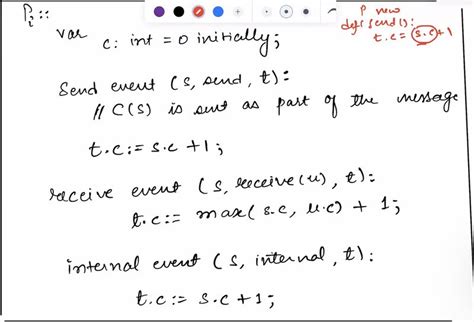 Pi ::
var
c: int = 0 initially;
Send event (s, send, t):
// C(S) is sent as part of the message
t.c := s.c + 1;
receive event (s, receive(u), t):
t.c := max(s.c, u.c) + 1;
internal event (s, internal, t):
t.c := s.c + 1;
P new
send():
t.c = s.c + 1